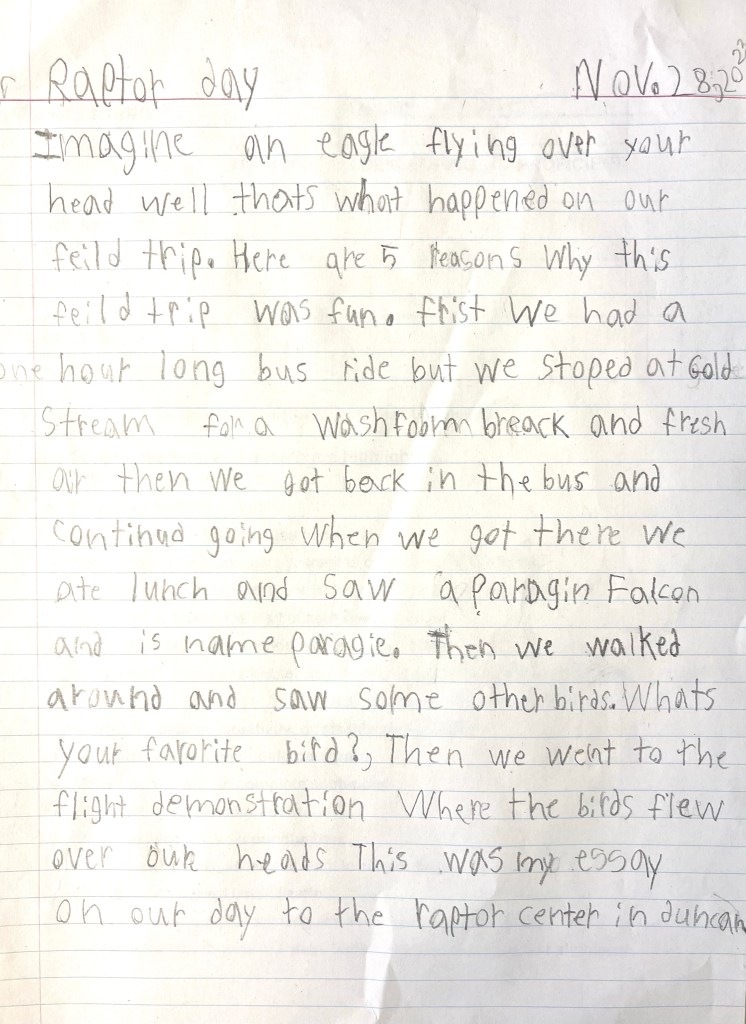 r Raptor day Nov. 28, 2022
Imagine an eagle flying over your
head well thats what happened on our
feild trip. Here are 5 reasons Why this
feild trip was fun. frist We had a
one hour long bus ride but we stoped at Gold
Stream for a Washfoorm breack and fresh
air then We got back in the bus and
continud going When we got there we
ate lunch and saw a Paragin Falcon
and is name paragie. Then we walked
around and saw some other birds. Whats
your farorite bird?, Then we went to the
flight demonstration Where the birds flew
over our heads This was my essay
on our day to the raptor center in duncan